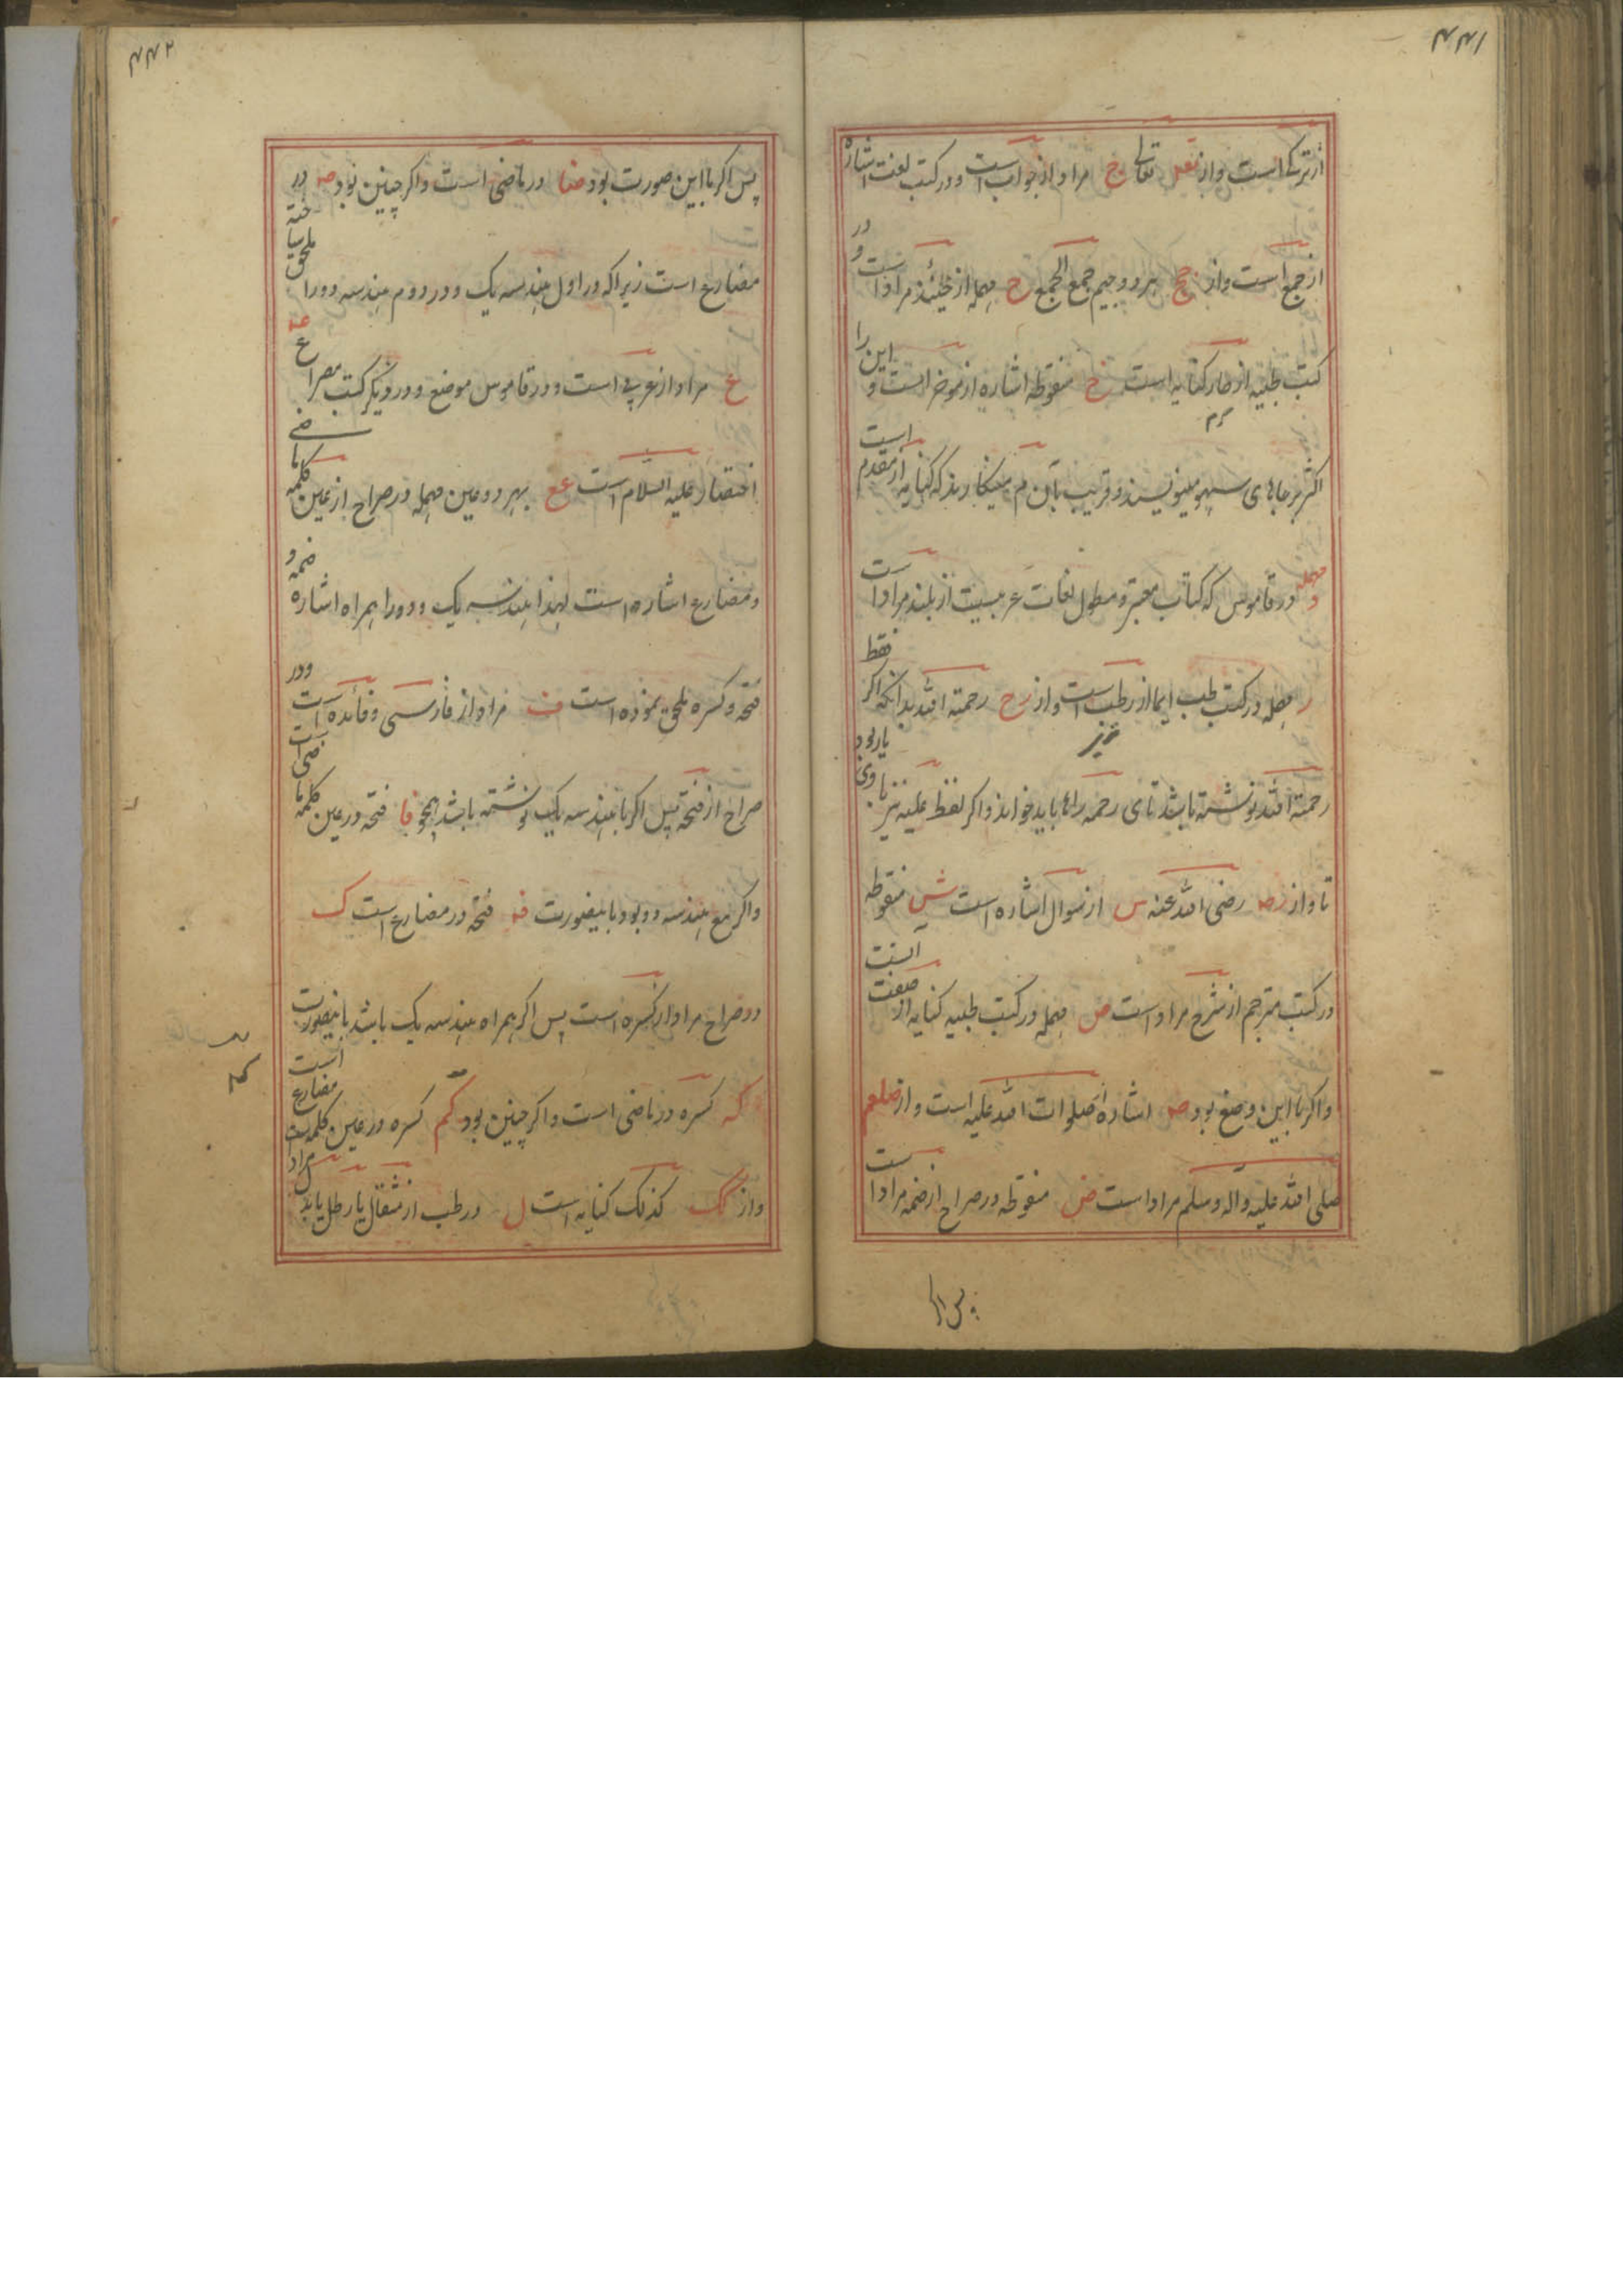 ۴۴۱
از ترکی است و از تعـ تعالی ج مراد از جواب است و در کتب لغت اشاره
از جمع است و از جج بهر دو جیم جمع الجمع ح مهمله از حینئذ مراد است و در
کتب طبیه از حار کنایه است خ منقوطه اشاره از موخر است و این را
اکثر بر جاهای سهو مینویسند و قریب بآن م مینکارند که کنایه از مقدم است
و در قاموس که کتاب معتبر و مطول لغات عربیست از بلند مراد است
ر مهمله در کتب طب ایما از رطب است و از رح رحمة الله بدانکه اکر فقط
رحمة الله نوشته باشد تای رحمه را ها باید خواند و اکر لفظ علیه نیز با وی یار بود
تا و از رضـ رضی الله عنه س از سوال اشاره است ش منقوطه
در کتب مترجم از شرح مراد است ص مهمله در کتب طبیه کنایه از صفت آنست
و اکر با این وضع بود صـ اشاره از صلوات الله علیه است و از صلعم
صلی الله علیه و آله و سلم مراد است ض منقوطه در صراح از ضمه مراد است
پس اکر
۴۴۲
پس اکر با این صورت بود ضا در ماضی است و اکر چنین بود ضـ در
مضارع است زیرا که در اول هندسه یک و در دوم هندسه دو را ملحق ساخته
ع مراد از عربی است و در قاموس موضع و در دیکر کتب مصراع
اختصار علیه السلام است عع بهر دو عین مهمله در صراح از عین کلمه ماضی
و مضارع اشاره است لهذا هندسه یک و دو را همراه اشاره ضمه و
فتحه و کسره ملحق نموده است ف مراد از فارسی و فائده است و در
صراح از فتحه پس اکر با هندسه یک نوشته باشد همچو فا فتحه در عین کلمه ماضی است
و اکر مع هندسه دو بود باینصورت فـ فتحه در مضارع است ک
در صراح مراد از کسره است پس اکر همراه هندسه یک باشد باینصورت
کـ کسره در ماضی است و اکر چنین بود کم کسره در عین کلمه مضارع است
و از کک کذلک کنایه است ل در طب از مثقال یا رطل باید مراد